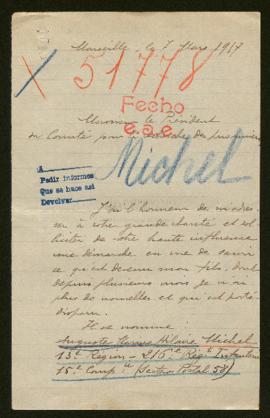 Marseille, le 7 Mars 1917
51778
Fecho
Monsieur le Président
du Comité pour la des prisonniers
Michel
A
Pedir informes
Que se hace asi
Devolver
J'ai l'honneur de m'adres
ser à votre grande charité et sol
liciter de votre haute influence
une démarche en vue de savoir
ce qu'est devenu mon fils, dont
depuis plusieurs mois je n'ai
plus de nouvelles et qui est porté
disparu.
Il se nomme
Auguste Hilaire Michel
13e Région - 216e Régt Infanterie
15e Compie (Secteur Postal 58)